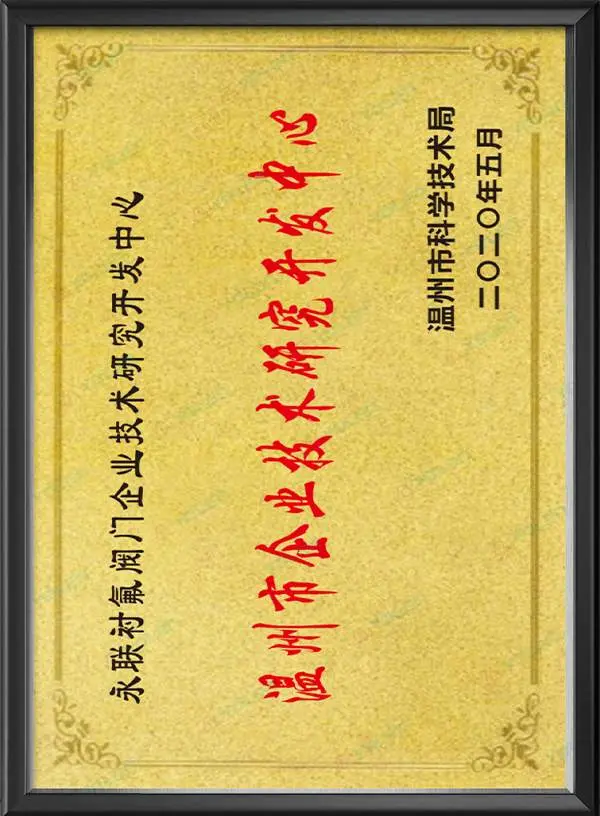 永联衬氟阀门企业技术研究开发中心
温州市企业技术研究开发中心
温州市科学技术局
二〇二〇年五月